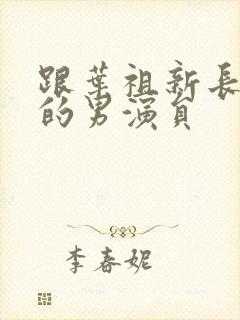 跟葉祖新長
的男演員
李春妮